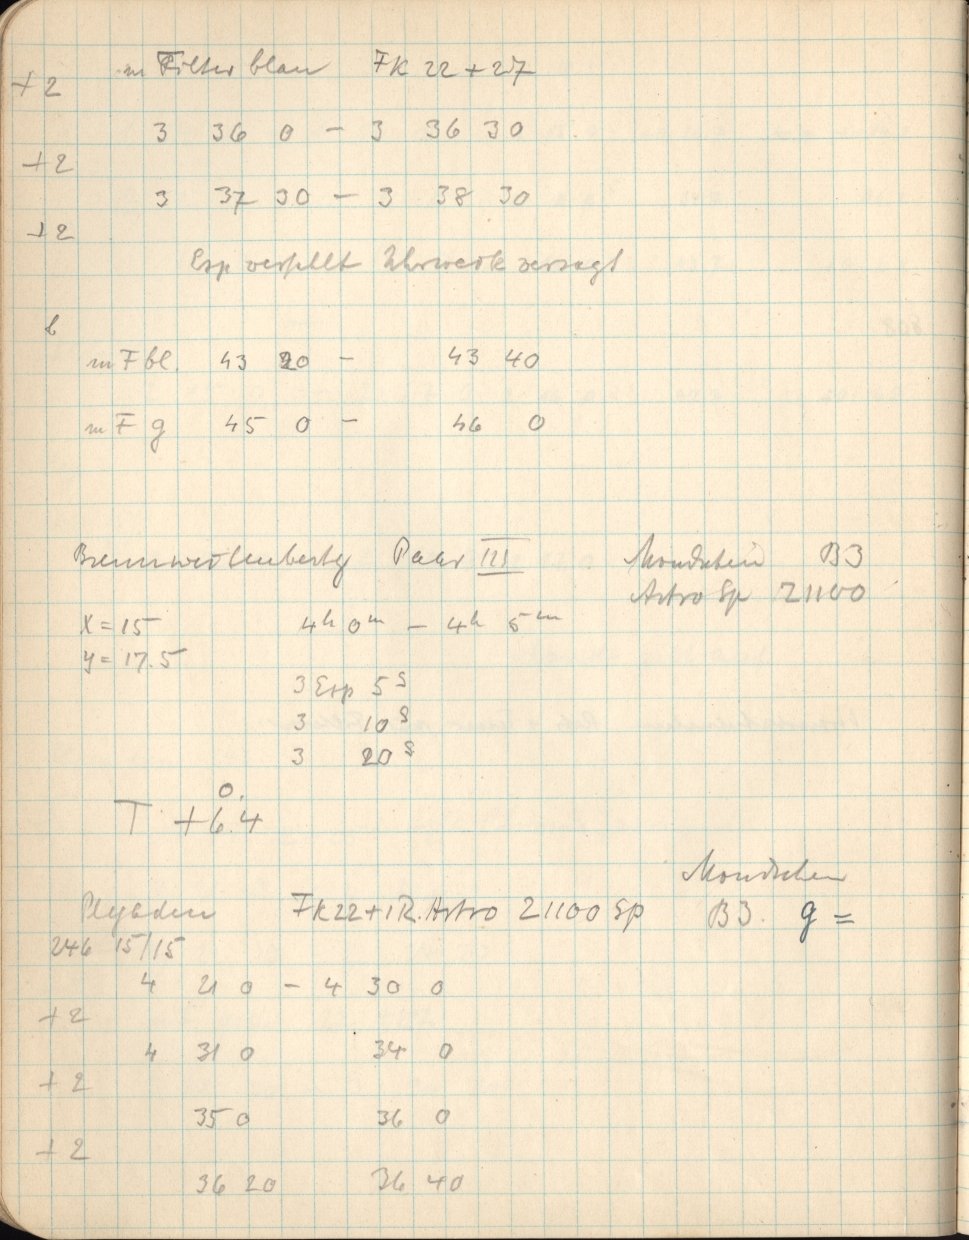 m Filter blau FK 22 + 27
+2
3 36 0 - 3 36 30
+2
3 37 30 - 3 38 30
+2
Exp verfehlt Uhrwerk versagt
b
m F bl. 43 20 - 43 40
m F g 45 0 - 46 0
Paar III Mondschein B3
Astro Sp 21100
X = 15 4h 0m - 4h 5m
y = 17.5
3 Exp 5s
3 10s
3 20s
T +6°.4
Mondschein
Plejaden FK22+1R. Astro 21100 Sp B3. g =
246 15/15
4 21 0 - 4 30 0
+2
4 31 0 34 0
+2
35 0 36 0
+2
36 20 36 40